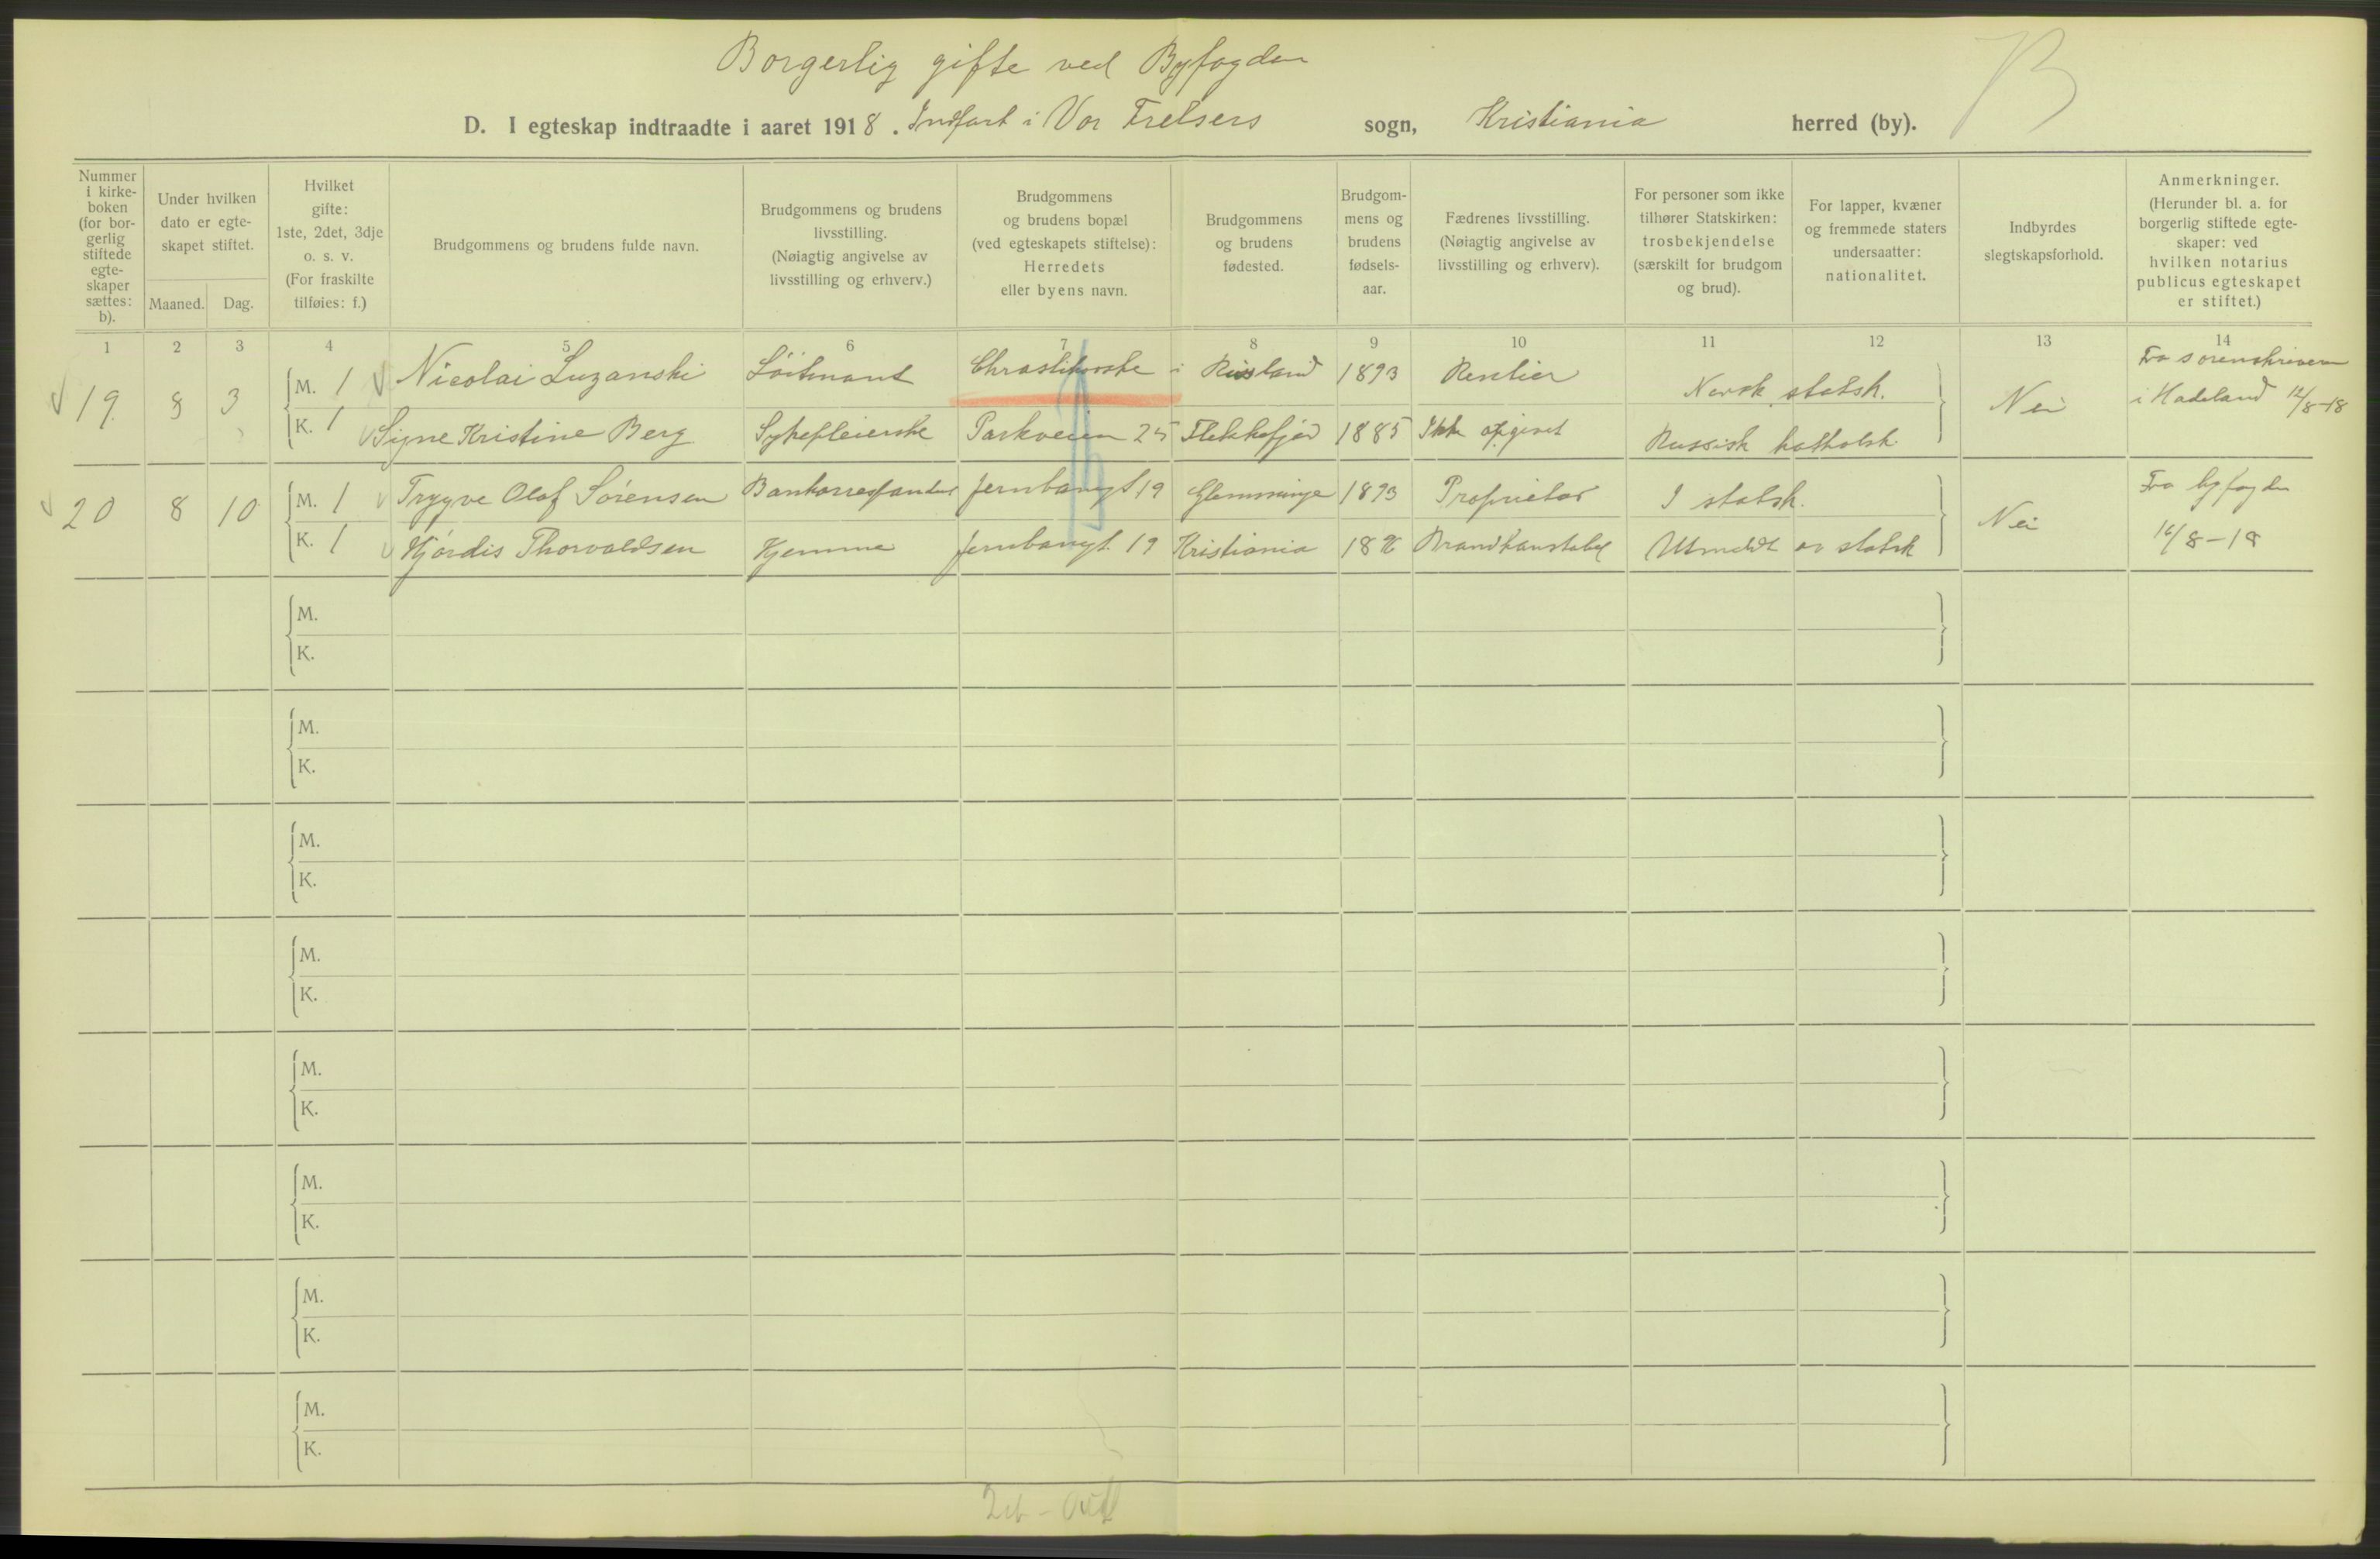 Borgerlig gifte ved Byfogden
D. I egteskap indtraadte i aaret 1918. Indført i Vor Frelsers sogn, Kristiania herred (by).
B
Nummer i kirkeboken (for borgerlig stiftede egteskaper sættes: b).
Under hvilken dato er egteskapet stiftet.
Maaned. Dag.
Hvilket gifte: 1ste, 2det, 3dje o. s. v. (For fraskilte tilføies: f.)
Brudgommens og brudens fulde navn.
Brudgommens og brudens livsstilling. (Nøiagtig angivelse av livsstilling og erhverv.)
Brudgommens og brudens bopæl (ved egteskapets stiftelse): Herredets eller byens navn.
Brudgommens og brudens fødested.
Brudgommens og brudens fødselsaar.
Fædrenes livsstilling. (Nøiagtig angivelse av livsstilling og erhverv).
For personer som ikke tilhører Statskirken: trosbekjendelse (særskilt for brudgom og brud).
For lapper, kvæner og fremmede staters undersaatter: nationalitet.
Indbyrdes slegtskapsforhold.
Anmerkninger. (Herunder bl. a. for borgerlig stiftede egteskaper: ved hvilken notarius publicus egteskapet er stiftet.)
1 2 3 4 5 6 7 8 9 10 11 12 13 14
19 8 3 M. 1 Nicolai Luzanski Løitnant i Rusland 1893 Rentier Norsk statsk. Nei Fra sorenskriveren i Hadeland 12/8-18
K. 1 Signe Kristine Berg Sykepleierske Parkveien 25 Flekkefjord 1885 Ikke opgivet Russisk katholsk.
20 8 10 M. 1 Trygve Olaf Sørensen Bankorrespondent Jernbanegt 19 Glemminge 1893 Proprietær I statsk. Nei Fra byfogden 16/8-18
K. 1 Hjørdis Thorvaldsen Hjemme Jernbanegt. 19 Kristiania Brandkonstabel Utmeldt av statsk
M.
K.
M.
K.
M.
K.
M.
K.
M.
K.
M.
K.
M.
K.
M.
K.